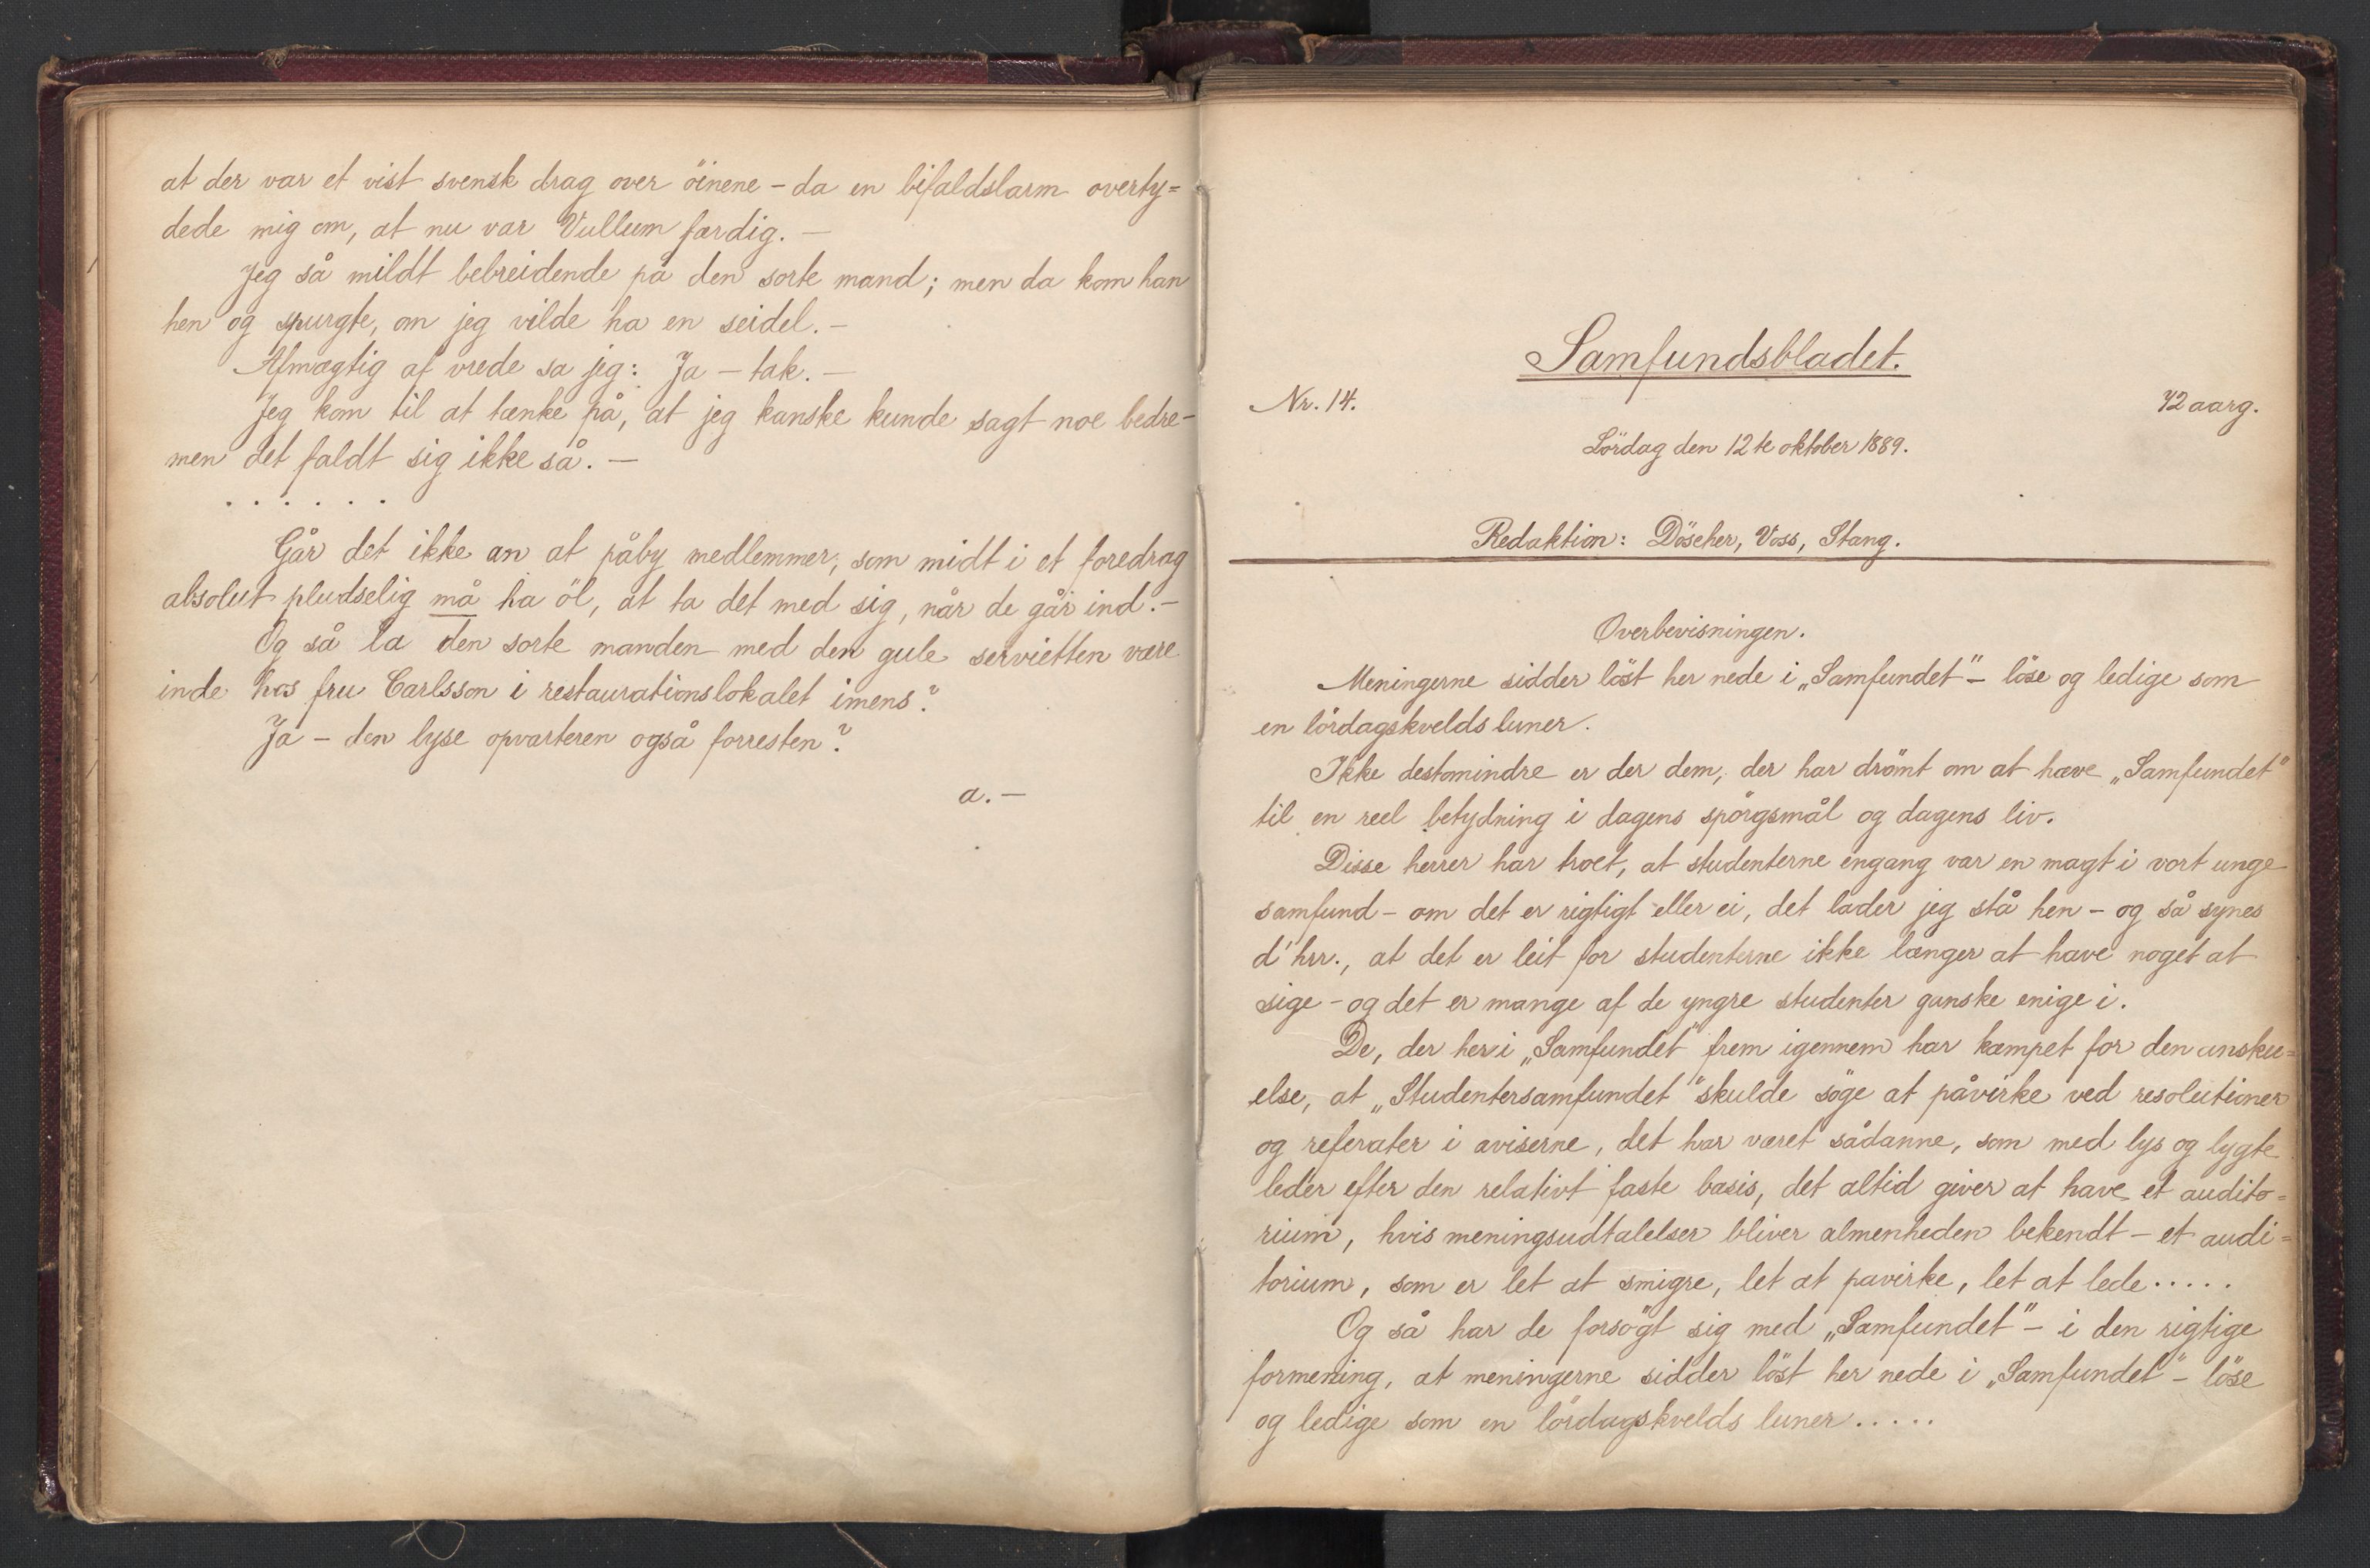 at der var et vist svensk drag over öinene – da en bifaldslarm overty=
dede mig om, at nu var Vullum færdig. –
Jeg så mildt bebreidende på den sorte mand; men da kom han
hen og spurgte, om jeg vilde ha en seidel. –
Afmægtig af vrede sa jeg: Ja – tak. –
Jeg kom til at tænke på, at jeg kanske kunde sagt noe bedre –
men det faldt sig ikke så. –
. . . . . .
Går det ikke an at påby medlemmer, som midt i et foredrag
absolut pludselig må ha öl, at ta det med sig, når de går ind. –
Og så la den sorte manden med den gule servietten være
inde hos fru Carlsson i restaurationslokalet imens?
Ja – den lyse opvarteren også forresten?
a. –
Samfundsbladet.
Nr. 14. 42 aarg.
Lördag den 12te oktober 1889.
Redaktion: Döscher, Voss, Stang.
Overbevisningen.
Meningerne sidder löst her nede i „Samfundet" – löse og ledige som
en lördagskvelds luner.
Ikke destomindre er der dem, der har drömt om at hæve „Samfundet"
til en reel betydning i dagens spörgsmål og dagens liv.
Disse herrer har troet, at studenterne engang var en magt i vort unge
samfund – om det er rigtigt eller ei, det lader jeg stå hen – og så synes
d'hrr., at det er leit for studenterne ikke længer at have noget at
sige – og det er mange af de yngre studenter ganske enige i.
De, der her i „Samfundet" frem igennem har kæmpet for den ansku=
else, at „Studentersamfundet" skulde söge at påvirke ved resolutioner
og referater i aviserne, det har været sådanne, som med lys og lygte
leder efter den relativt faste basis, det altid giver at have et audito=
rium, hvis meningsudtalelser bliver almenheden bekendt – et audi=
torium, som er let at smigre, let at pavirke, let at lede . . . . .
Og så har de forsögt sig med „Samfundet" – i den rigtige
formening, at meningerne sidder löst her nede i „Samfundet" – löse
og ledige som en lördagskvelds luner . . . . .